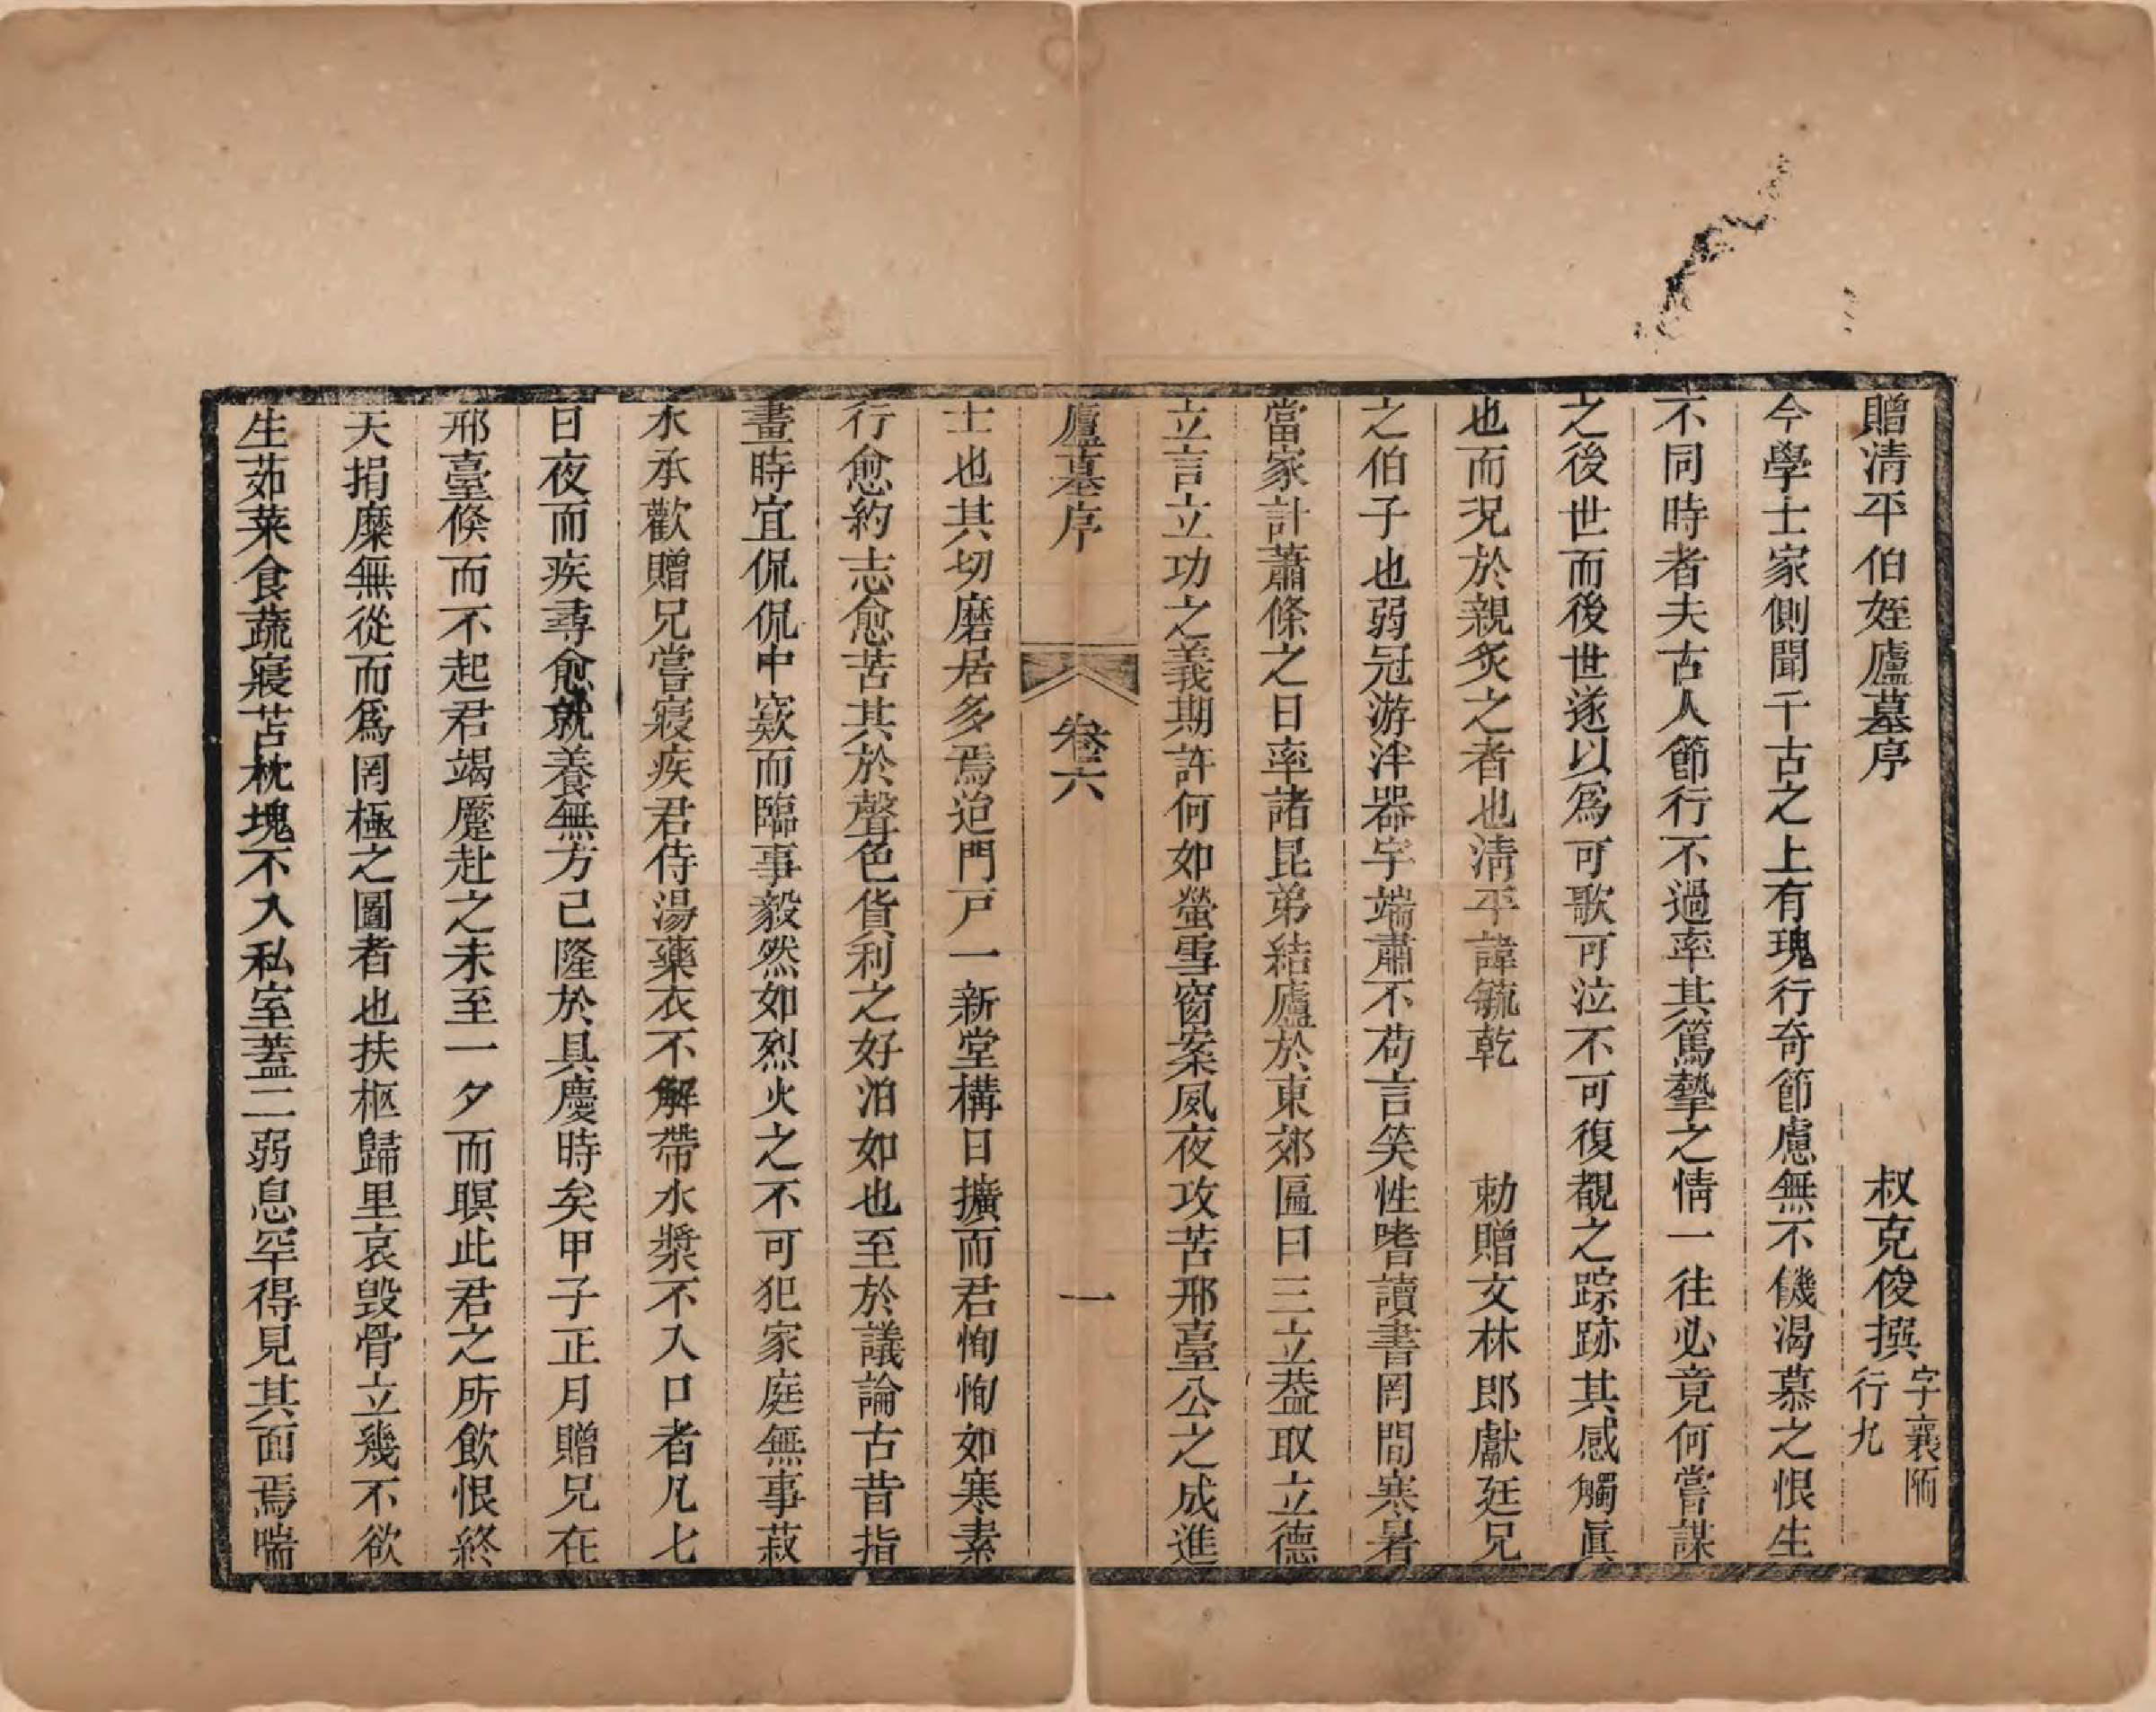 贈淸平伯姪廬墓序　叔克俊撰字襄陑行九
今學士家側聞千古之上有瑰行奇節慮無不饑渴慕之恨生
不同時者夫古人節行不過率其篤摯之情一往必竟何嘗謀
之後世而後世遂以爲可歌可泣不可復覩之踪跡其感觸眞
也而況於親炙之者也淸平諱毓乾　勅贈文林郎獻廷兄
之伯子也弱冠游泮器宇端肅不苟言笑性嗜讀書罔間寒暑
當家計蕭條之日率諸昆弟結廬於東郊匾曰三立葢取立德
立言立功之義期許何如螢雪窗案夙夜攻苦邢臺公之成進
廬墓序　卷六　一
士也其切磨居多焉迨門戸一新堂構日擴而君恂恂如寒素
行愈約志愈苦其於聲色貨利之好泊如也至於議論古昔指
畫時宜侃侃中窾而臨事毅然如烈火之不可犯家庭無事菽
水承歡贈兄嘗寢疾君侍湯藥衣不解帶水漿不入口者凡七
日夜而疾尋愈就養無方已隆於具慶時矣甲子正月贈兄在
邢臺倏而不起君竭蹷赴之未至一夕而瞑此君之所飮恨終
天捐糜無從而爲罔極之圖者也扶柩歸里哀毀骨立幾不欲
生茹菜食蔬寢苫枕塊不入私室蓋二弱息罕得見其面焉喘